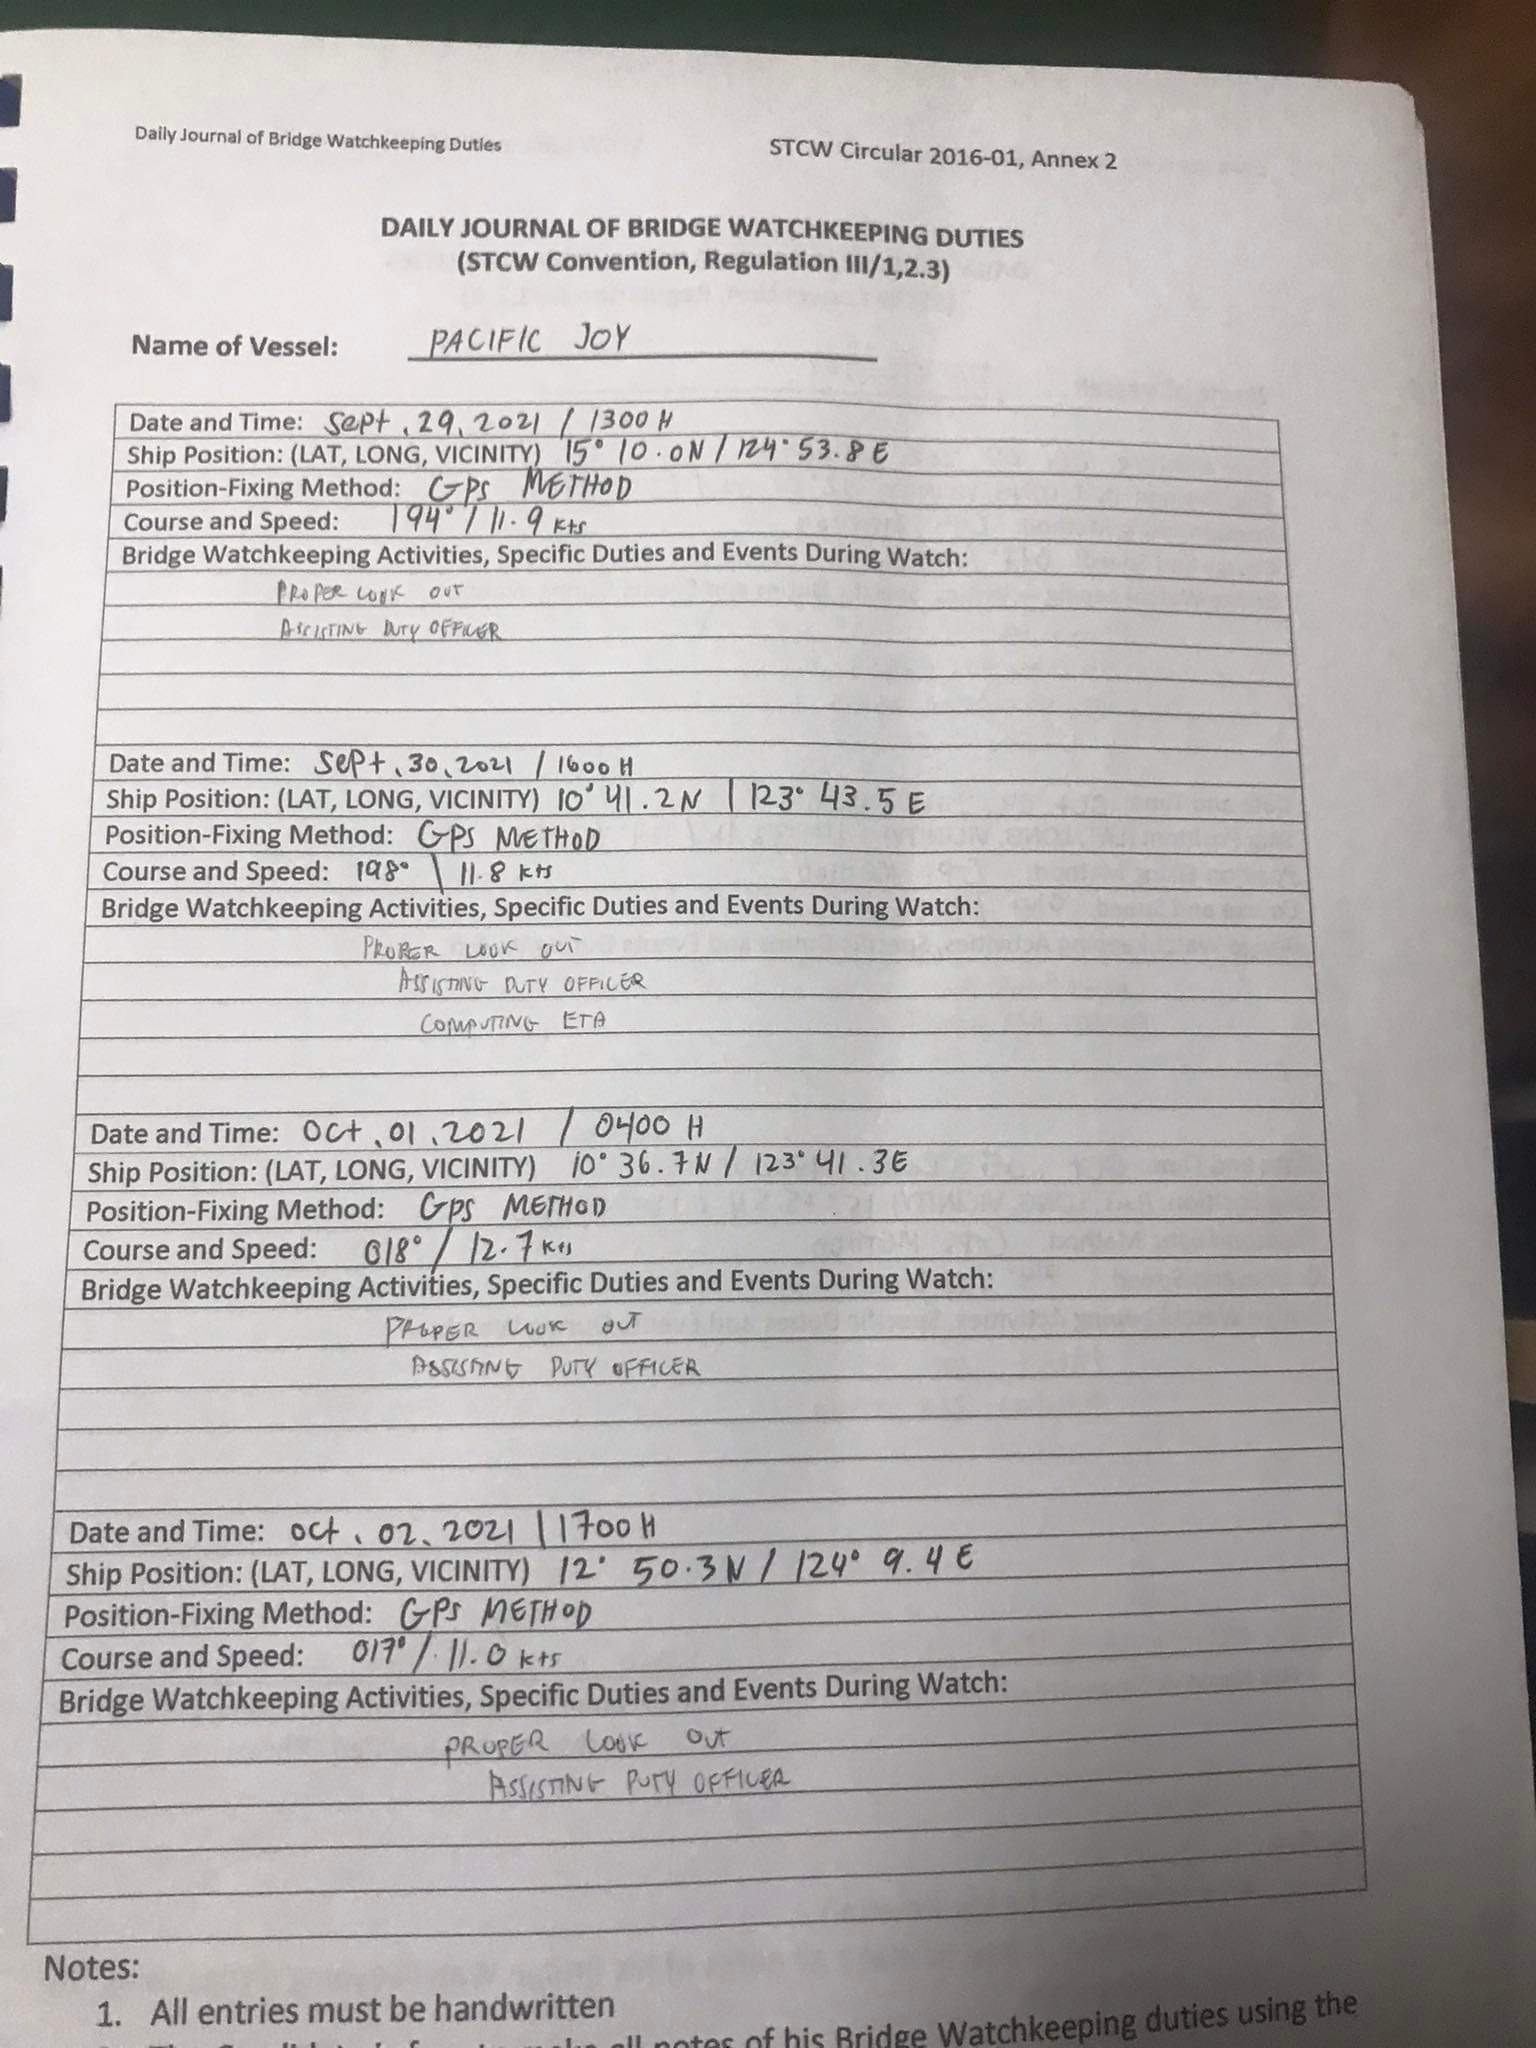 Daily Journal of Bridge Watchkeeping Duties
STCW Circular 2016-01, Annex 2
DAILY JOURNAL OF BRIDGE WATCHKEEPING DUTIES
(STCW Convention, Regulation III/1,2.3)
Name of Vessel: PACIFIC JOY
Date and Time: Sept. 29, 2021 / 1300 H
Ship Position: (LAT, LONG, VICINITY) 15° 10.0N / 124° 53.8 E
Position-Fixing Method: GPS METHOD
Course and Speed: 194° / 11.9 kts
Bridge Watchkeeping Activities, Specific Duties and Events During Watch:
PROPER LOOK OUT
ASSISTING DUTY OFFICER
Date and Time: Sept. 30, 2021 / 1600 H
Ship Position: (LAT, LONG, VICINITY) 10° 41.2 N | 123° 43.5 E
Position-Fixing Method: GPS METHOD
Course and Speed: 198° \ 11.8 kts
Bridge Watchkeeping Activities, Specific Duties and Events During Watch:
PROPER LOOK OUT
ASSISTING DUTY OFFICER
COMPUTING ETA
Date and Time: Oct. 01, 2021 / 0400 H
Ship Position: (LAT, LONG, VICINITY) 10° 36.7 N / 123° 41.3E
Position-Fixing Method: GPS METHOD
Course and Speed: 018° / 12.7 kts
Bridge Watchkeeping Activities, Specific Duties and Events During Watch:
PROPER LOOK OUT
ASSISTING DUTY OFFICER
Date and Time: Oct. 02, 2021 | 1700 H
Ship Position: (LAT, LONG, VICINITY) 12° 50.3 N / 124° 9.4 E
Position-Fixing Method: GPS METHOD
Course and Speed: 017° / 11.0 kts
Bridge Watchkeeping Activities, Specific Duties and Events During Watch:
PROPER LOOK OUT
ASSISTING DUTY OFFICER
Notes:
1. All entries must be handwritten
all notes of his Bridge Watchkeeping duties using the